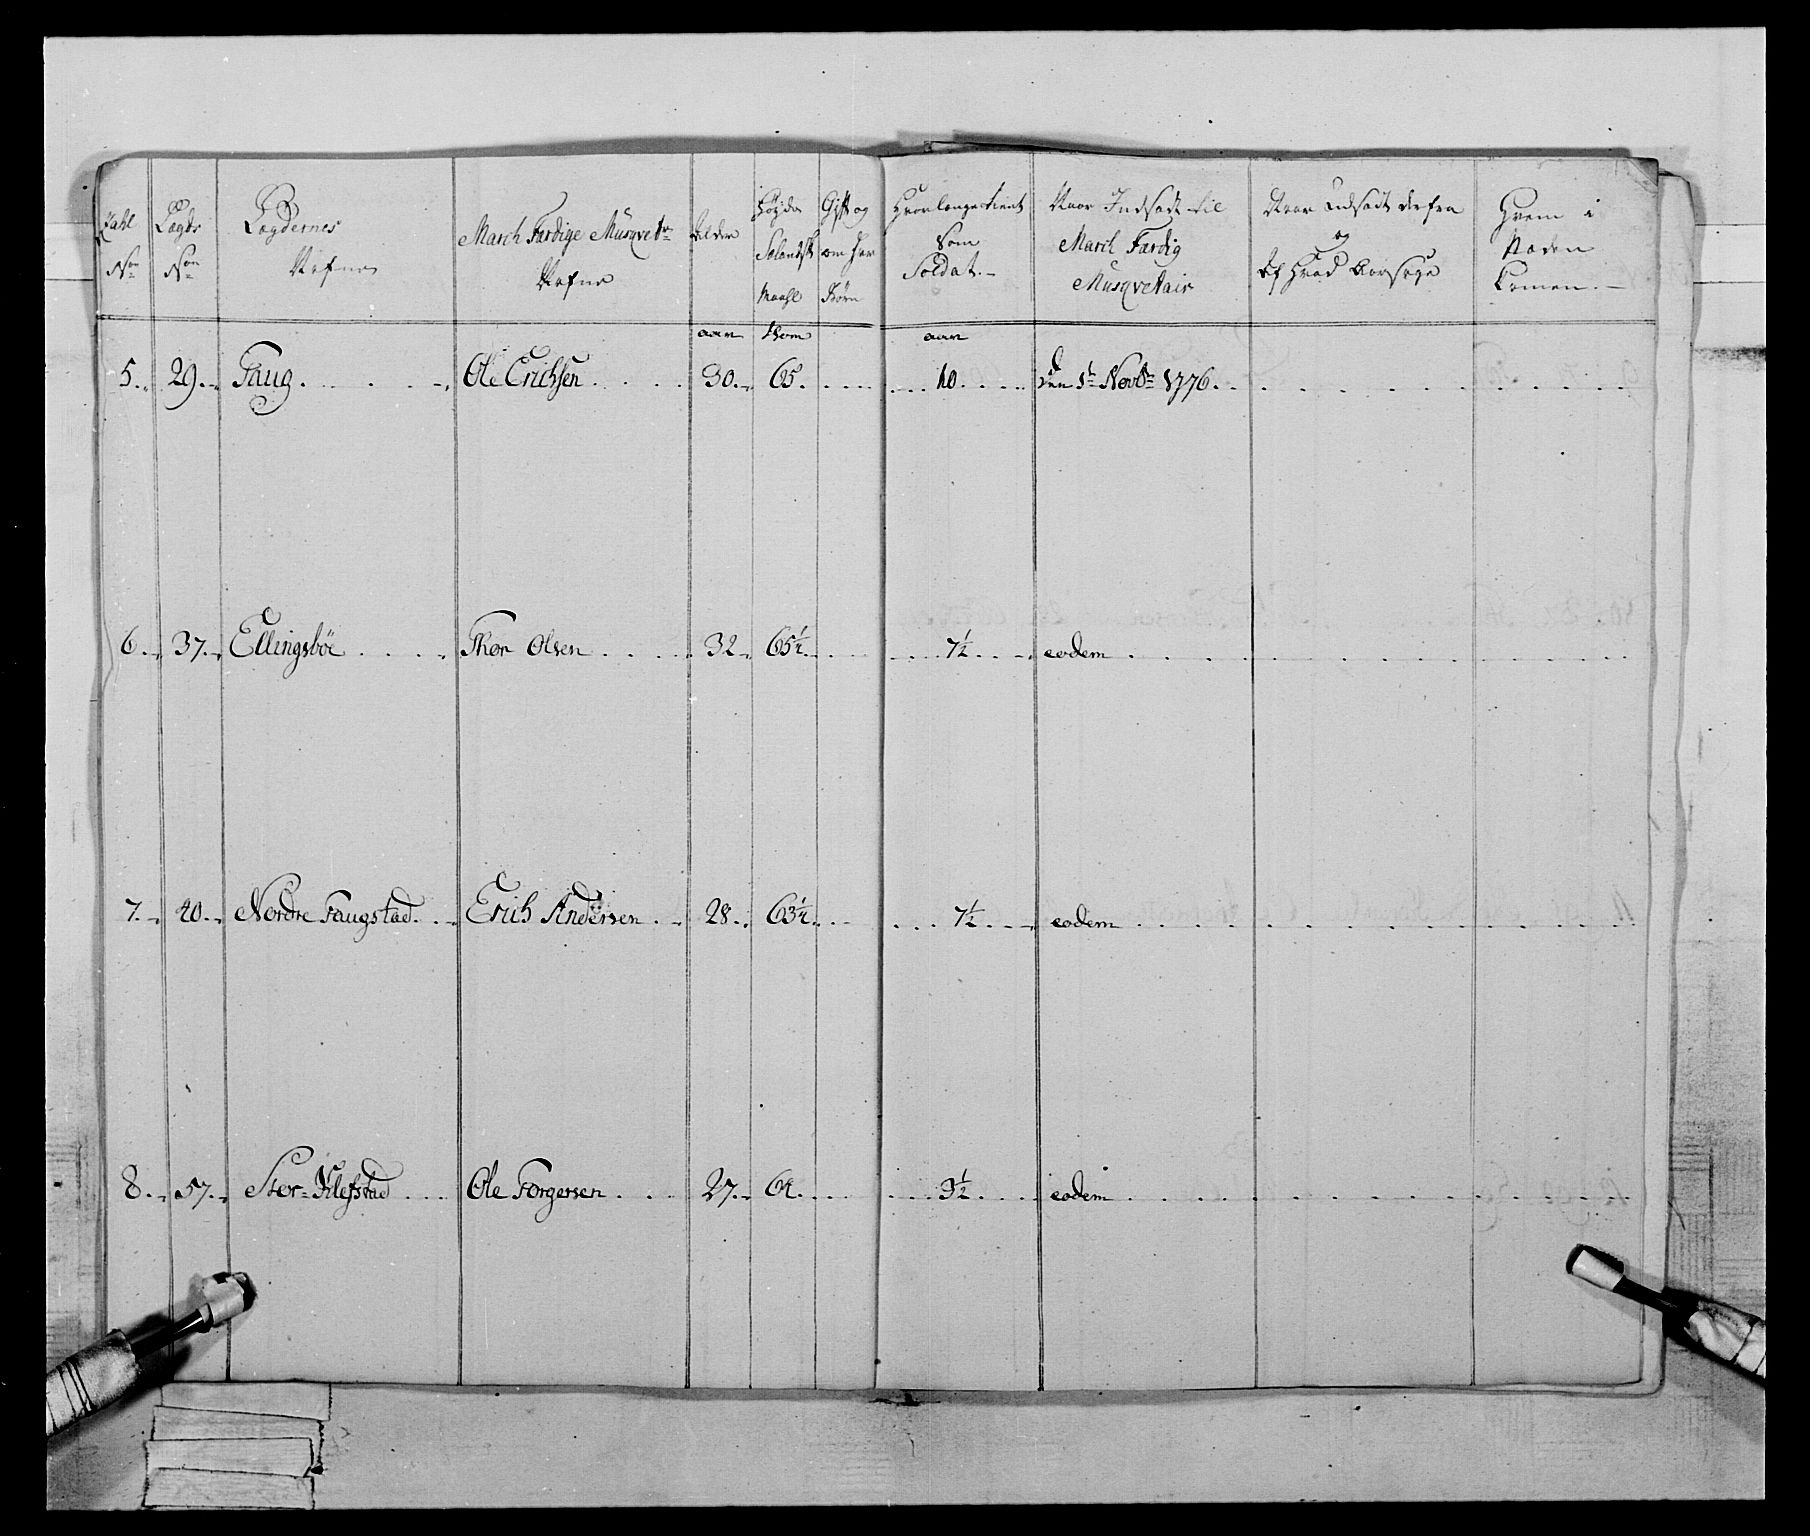 Tahl Non
Lægds Non
Lægdernes Nafne
March Færdige Musqvetr Nafne
Alder
Høyde Sælandsk Maahl
Gift og om har Børn
Hvor længe tient som Soldat.
Naar Indsadt til March Færdig Musqvetair
Naar Udsadt derfra og Af Hvad Aarsage
Hvem i Staden komen.
aar Tom aar
5. 29. Haug Ole Erichsen 30. 65. 10. den 1te Novbr 1776.
6. 37. Ellingsböe Thor Olsen 32 65½ 7½ eodem
7. 40. Nordre Haugstad Erich Andersen 28. 63½ 7½ eodem
8. 57. Stor-Klefstad Ole Torgersen 27. 64. 3½ eodem